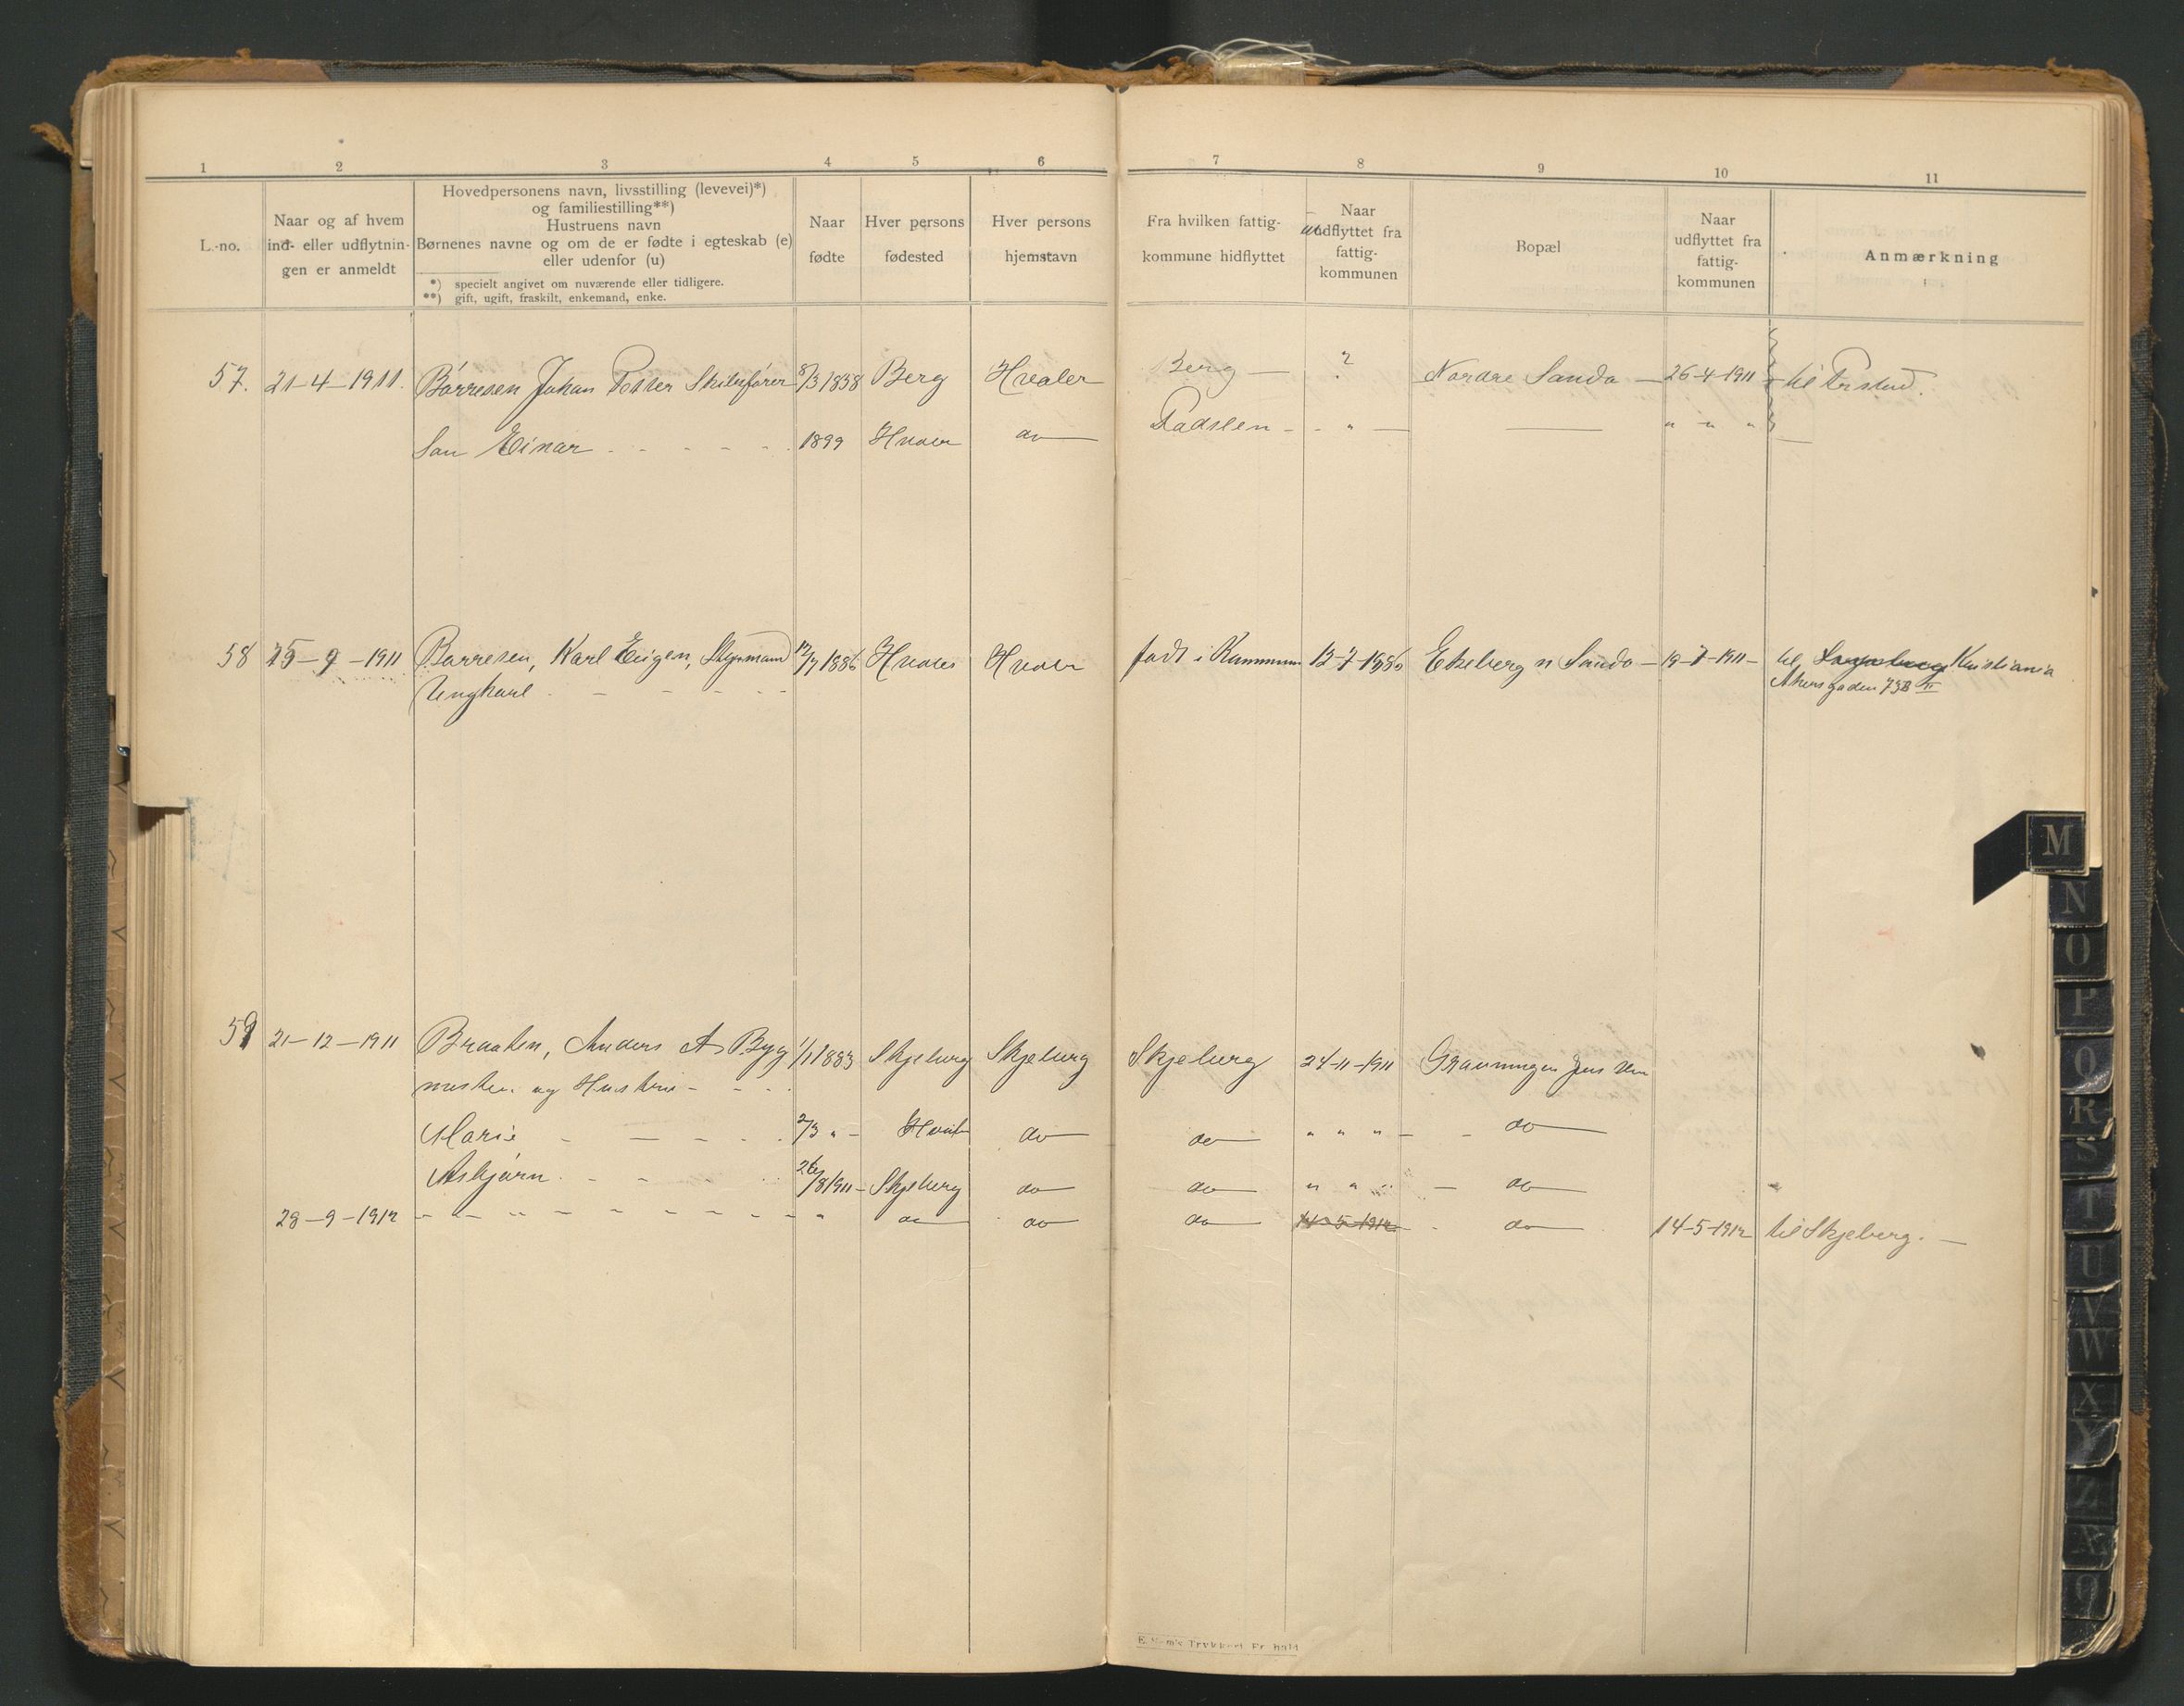 1 2 3 4 5 6 7 8 9 10 11
L.-no.
Naar og af hvem
ind- eller udflytnin-
gen er anmeldt
Hovedpersonens navn, livsstilling (levevei)*)
og familiestilling**)
Hustruens navn
Børnenes navne og om de er fødte i egteskab (e)
eller udenfor (u)
*) specielt angivet om nuværende eller tidligere.
**) gift, ugift, fraskilt, enkemand, enke.
Naar
fødte
Hver persons
fødested
Hver persons
hjemstavn
Fra hvilken fattig-
kommune hidflyttet
Naar
udflyttet fra
fattig-
kommunen
Bopæl
Naar
udflyttet fra
fattig-
kommunen
Anmærkning
57. 21-4-1911. Børresen Johan Skibsfører 8/3 1858 Berg Hvaler Berg — ? Nordre Sandø — 26-4-1911 — til
Søn Einar - - - - - 1899 Hvaler do — - " — — " " "
58 -9-1911 Børresen, Karl Eugen, Styrmand 12/7 1886 Hvaler Hvaler født i Kommunen 12-7-1886 Ekeberg n Sandø — 19-7-1911 — til Kristiania
Ungkarl - - - - - Akersgaden 73B II
59 21-12-1911 Braaten, Anders A Byg 1/1 1883 Skjeberg Skjeberg Skjeberg 24-11-1911
mester og Hustru - - -
Marie - - - - 2/3 " - do — do — " " " — - do —
Asbjørn - - - 26/8 1911 - Skjeberg do — do — " " " — do —
28-9-1912 - - - - - - - - " do — do — do — 14-5-1912 - do — 14-5-1912 til Skjeberg. —
M
N
O
P
Q
R
S
T
U
V
W
X
Y
Z
Æ
Ø